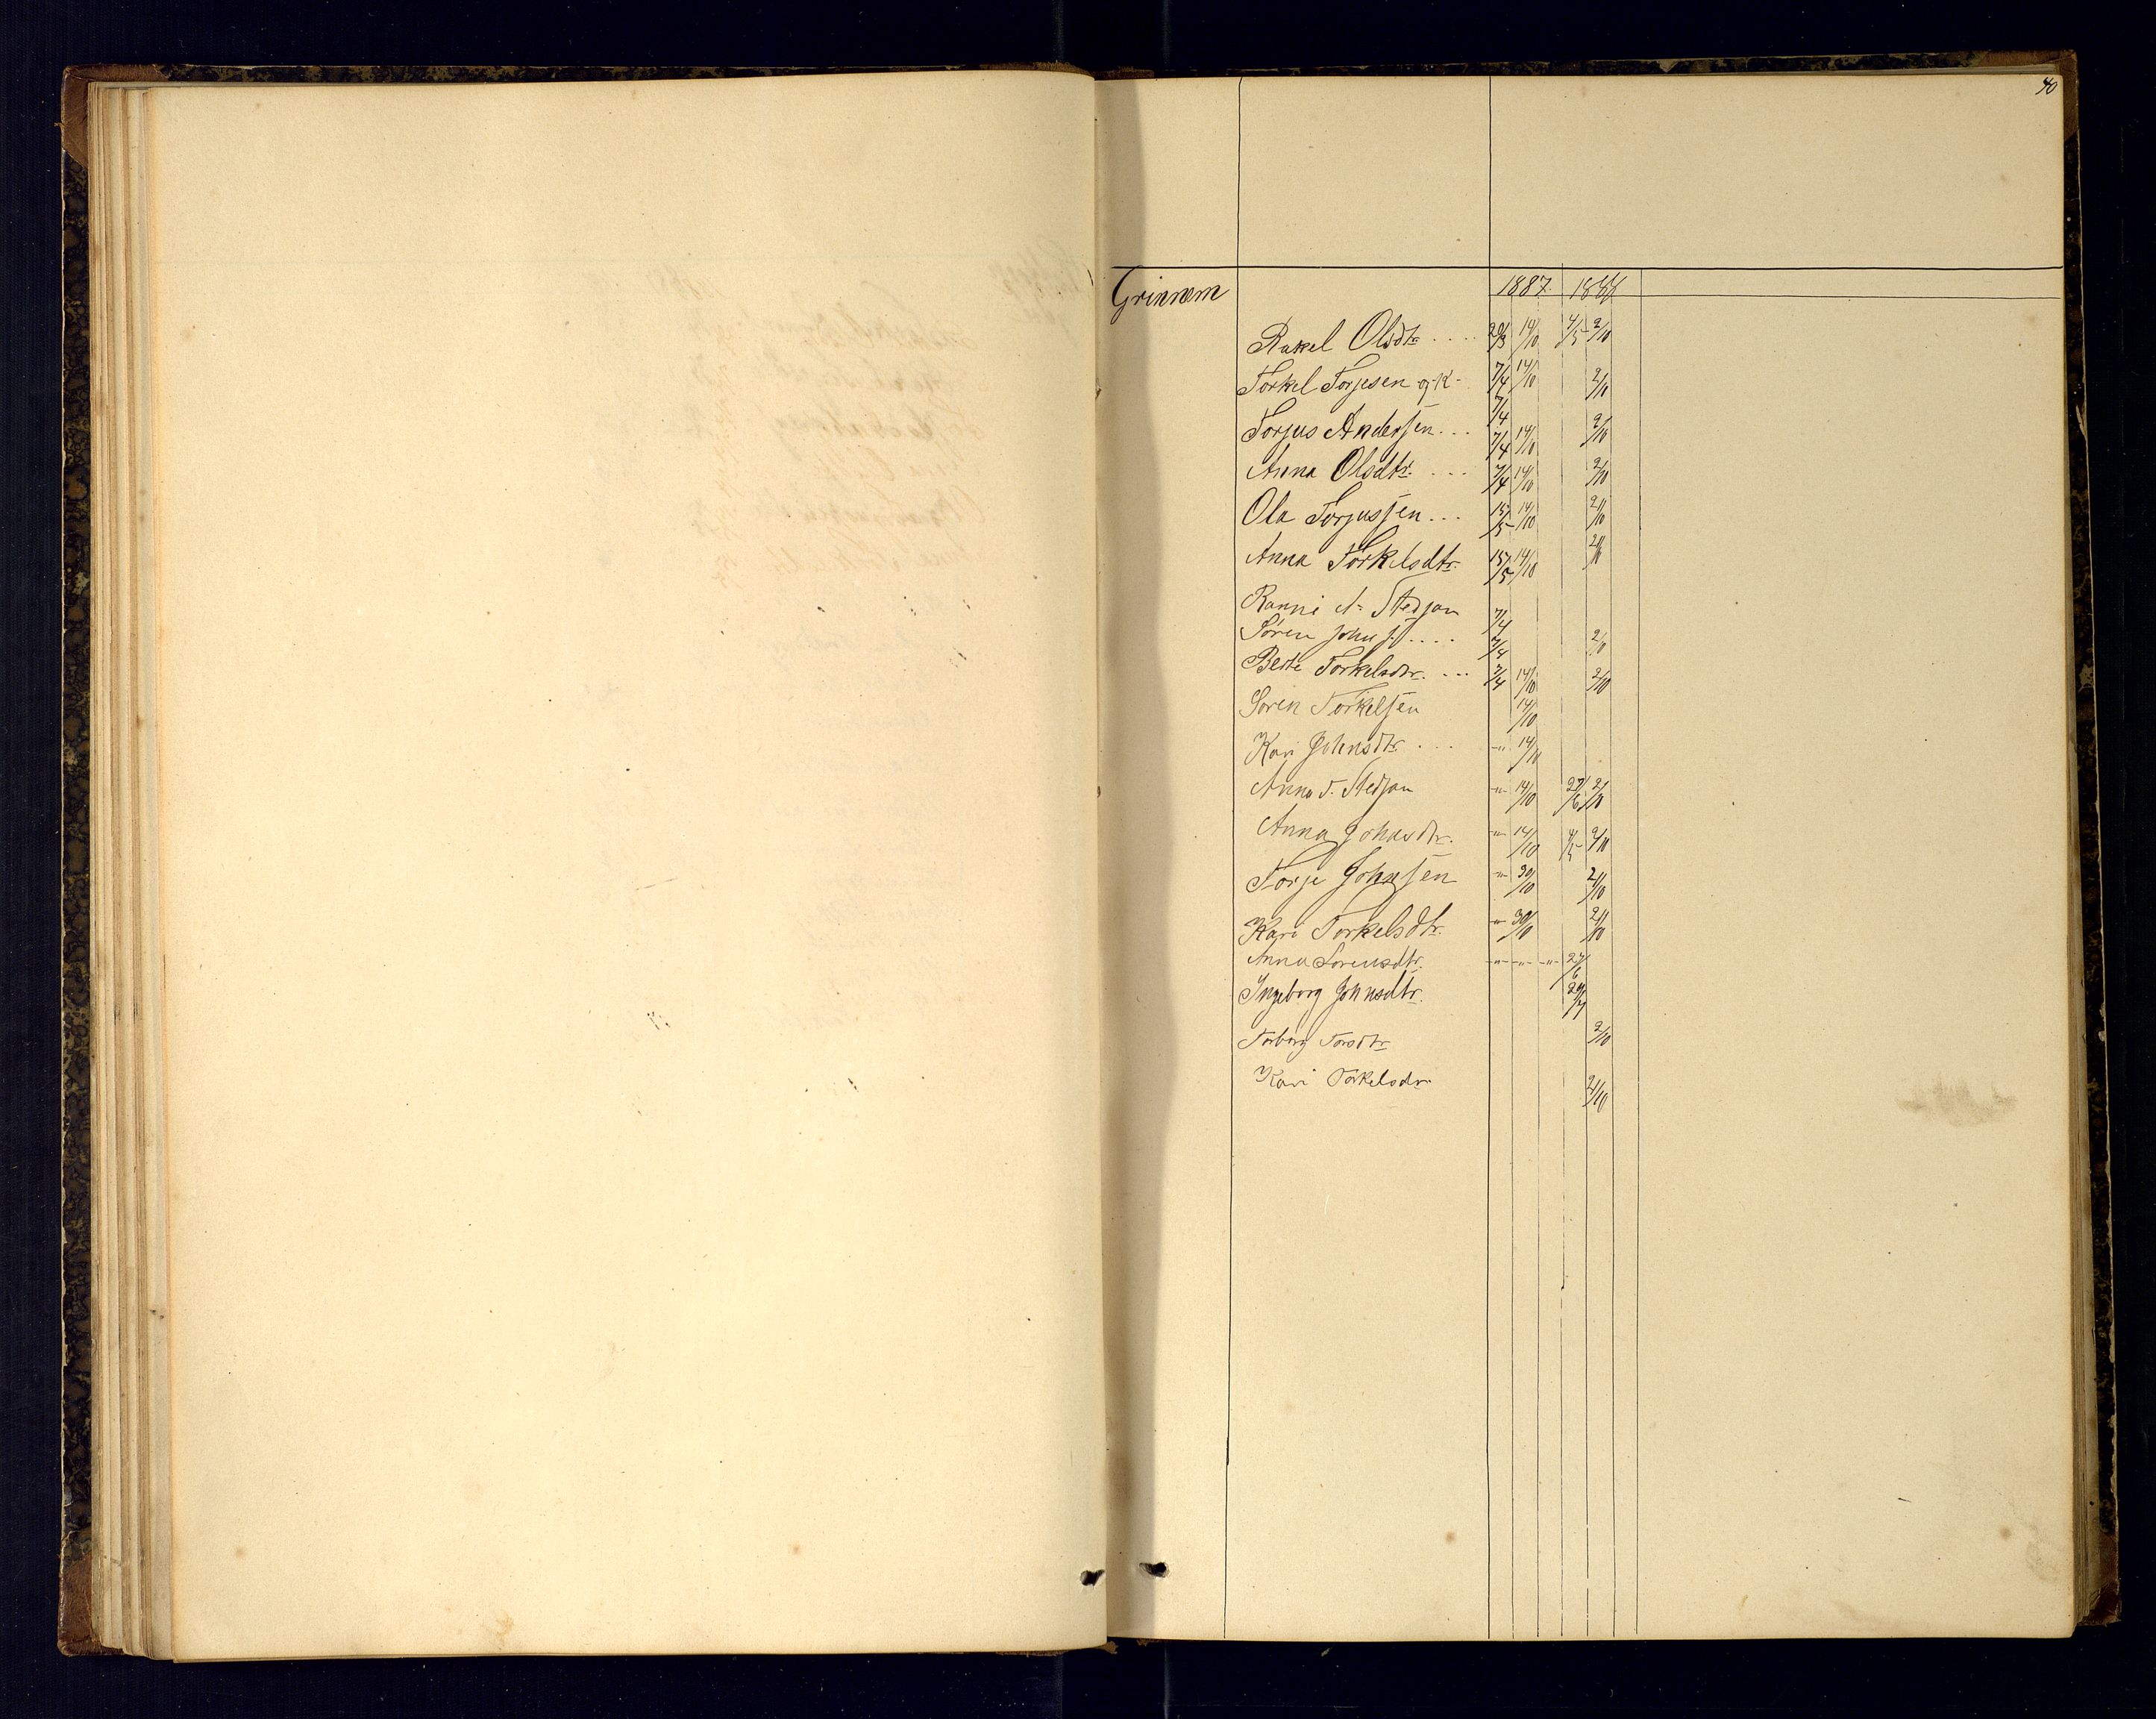 40
Grinnem 1887. 1888
Rakel Olsdtr. .... 20/3 14/10 4/5 2/10
Torkel Torjesen og K- 7/4 14/10 2/10
7/4
Torjus Andersen... 7/4 14/10 2/10
Anna Olsdtr. ... 7/4 14/10 2/10
Ola Torjussen... 15/5 14/10 2/10
Anna Torkelsdtr. 15/5 14/10 2/10
Ranni A. Stedjan 7/4
Søren Johns. .... 7/4 2/10
Berte Torkelsdtr. ... 7/4 14/10 2/10
Soren Torkelsen 14/10
Kari Johnsdtr. ... -"- 14/10
Anna T. Stedjan -"- 14/10 27/6 2/10
Anna Johnsdtr. -"- 14/10 4/5 2/10
Torje Johnsen -"- 30/10 2/10
Kari Torkelsdtr. -"- 30/10 2/10
Anna Sorensdtr. -"- -"- -"- 27/6
Ingeborg Johnsdtr. 29/7
Torborg Torsdtr 2/10
Kari Torkelsdr. 2/10